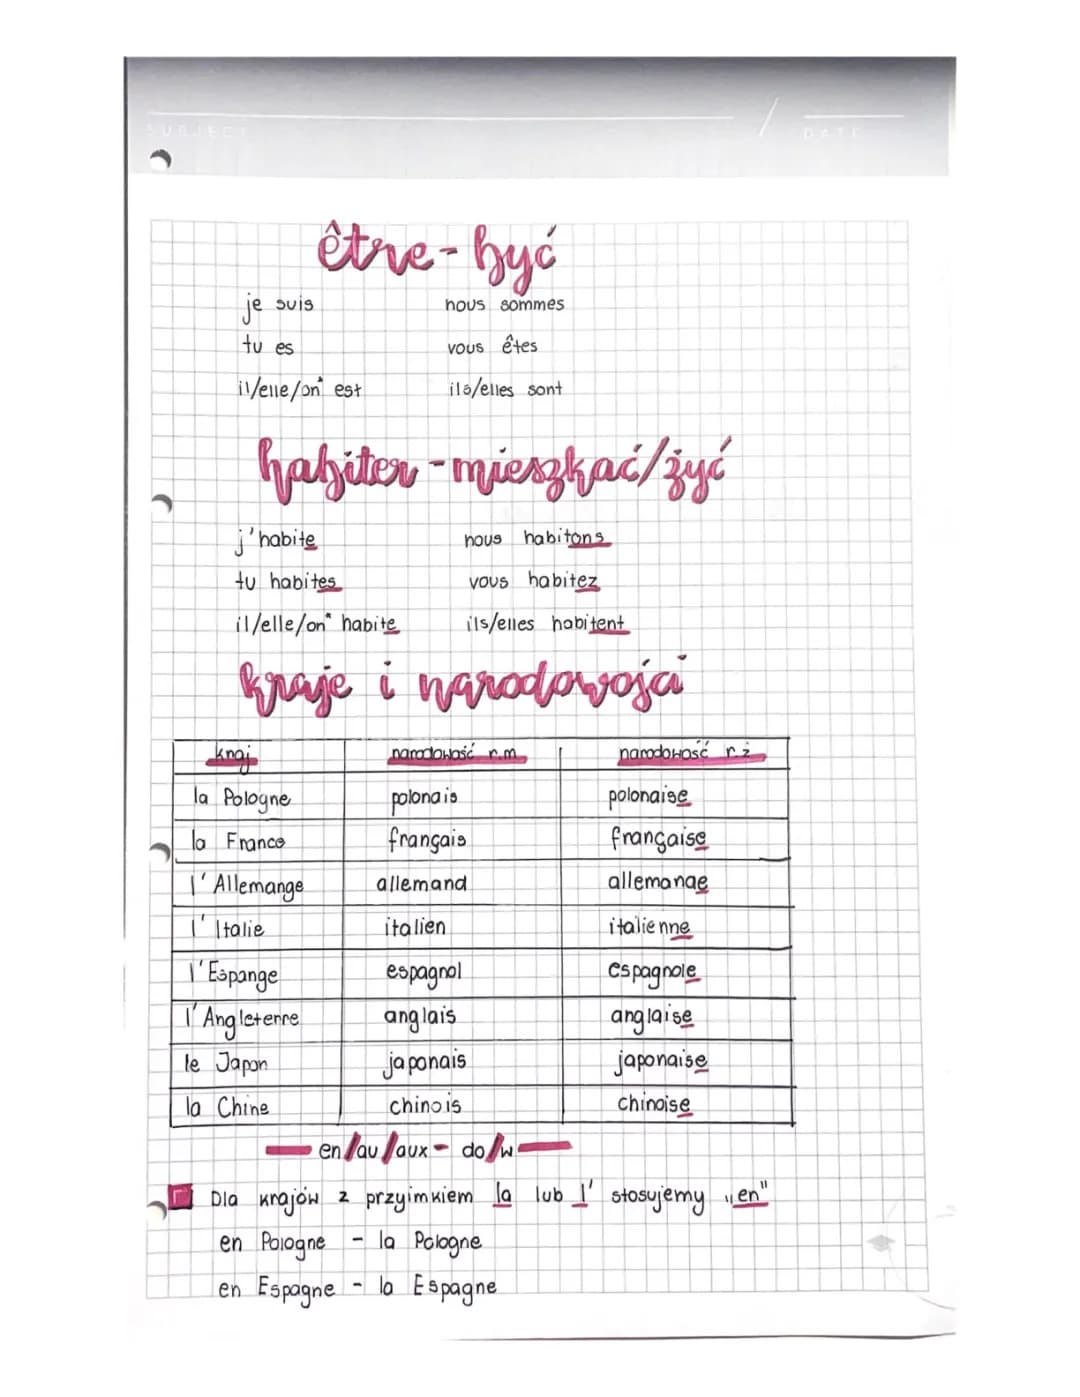 SUBJECT
DATE
être - być
je suis nous sommes
tu es vous êtes
il/elle/on* est ils/elles sont
habiter - mieszkać/żyć
j'habite nous habitons
tu habites vous habitez
il/elle/on* habite ils/elles habitent
kraje i narodowości
kraj narodowość r.m. narodowość r.ż.
la Pologne polonais polonaise
la France français française
l'Allemange allemand allemande
l'Italie italien italienne
l'Espange espagnol espagnole
l'Angleterre anglais anglaise
le Japon japonais japonaise
la Chine chinois chinoise
en/au/aux - do/w
Dla krajów z przyimkiem la lub l' stosujemy „en"
en Pologne - la Pologne
en Espagne - la Espagne